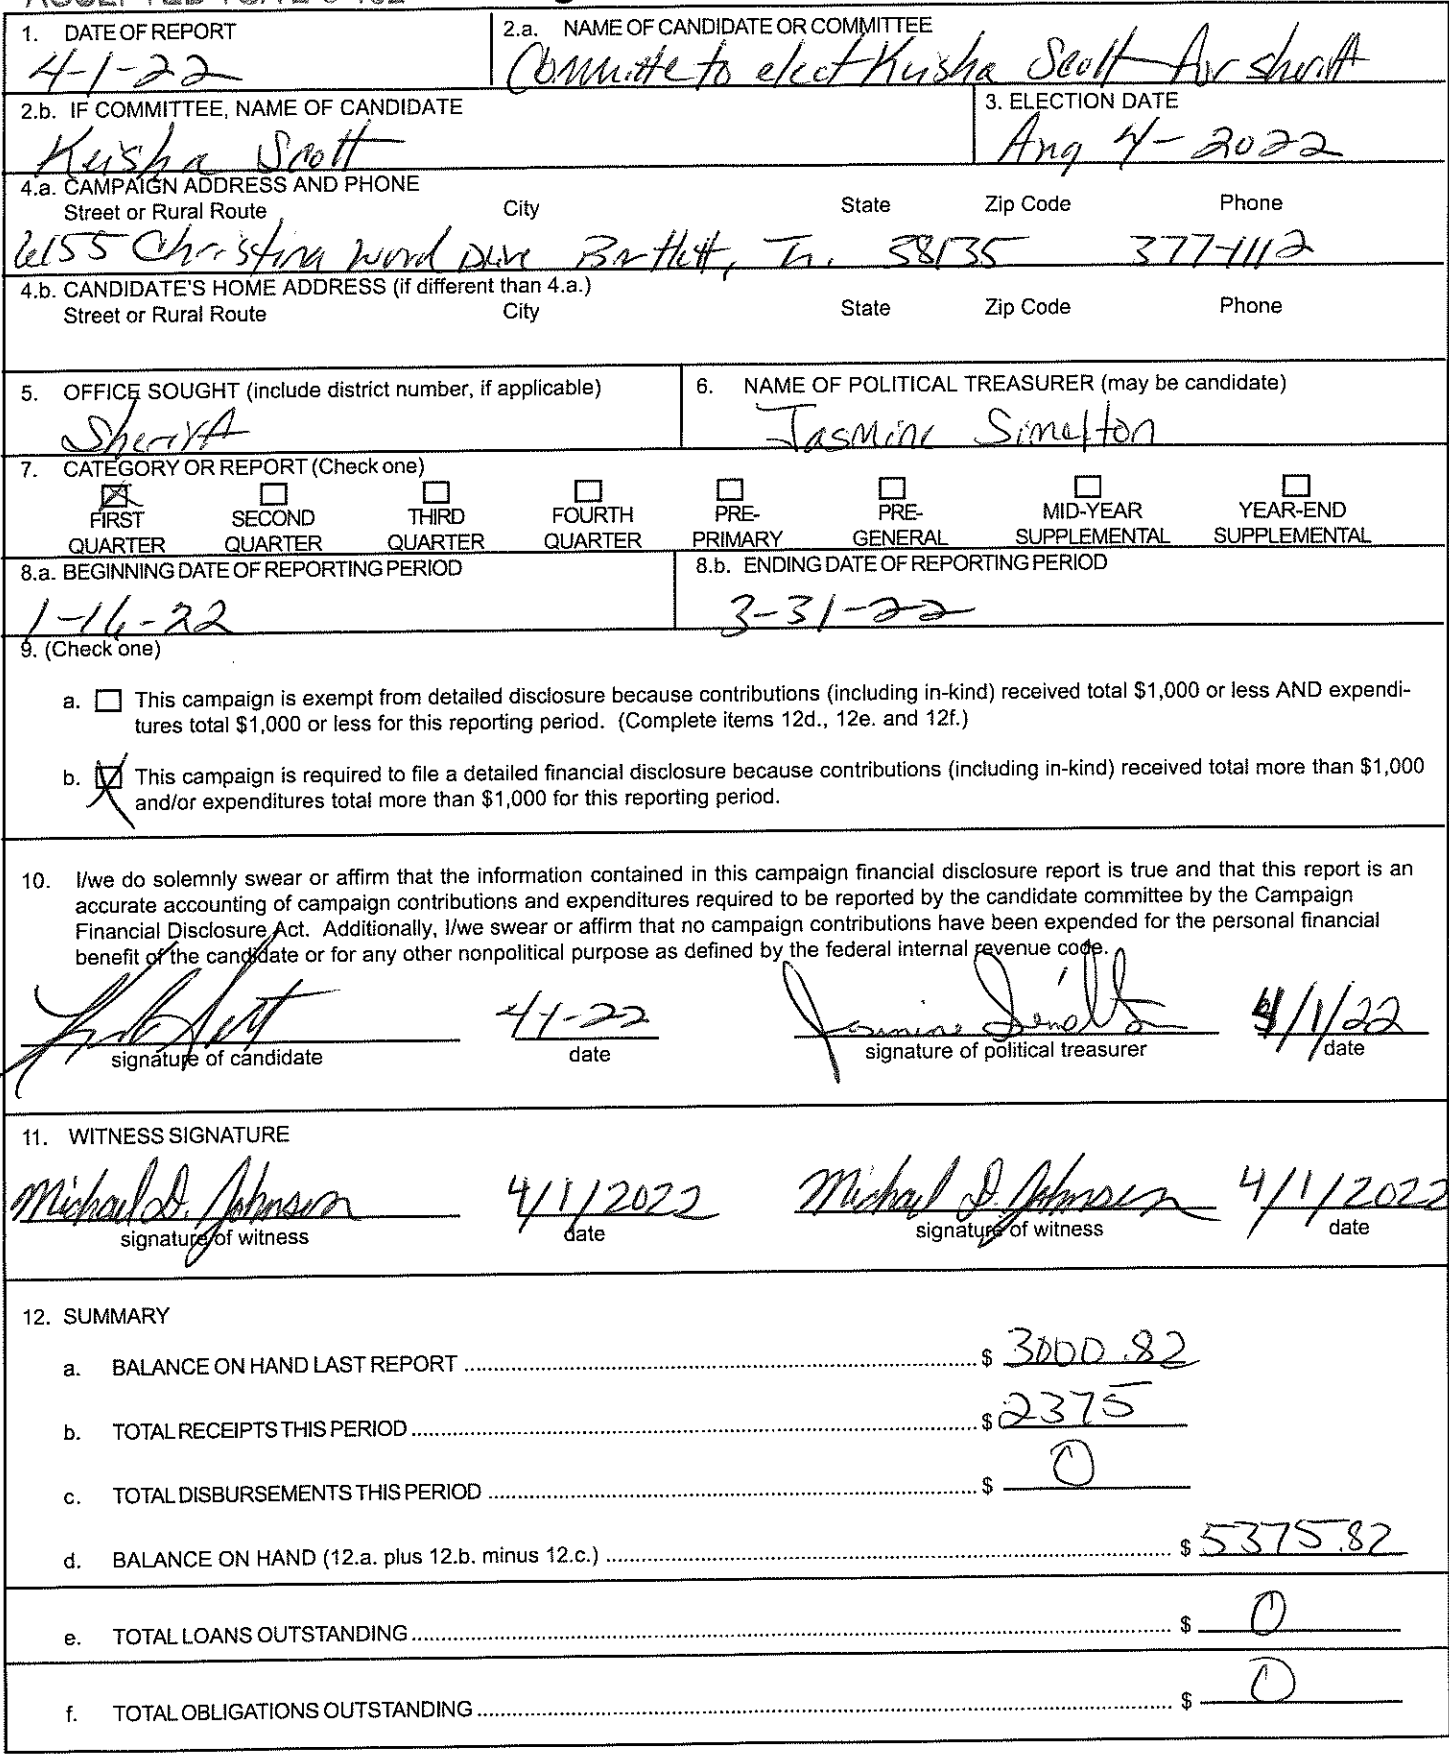 1. DATE OF REPORT
4-1-22
2.a. NAME OF CANDIDATE OR COMMITTEE
Committe to elect Keisha Scott for sheriff
2.b. IF COMMITTEE, NAME OF CANDIDATE
Keisha Scott
3. ELECTION DATE
Aug 4-2022
4.a. CAMPAIGN ADDRESS AND PHONE
Street or Rural Route City State Zip Code Phone
6155 Christina Wood Drive Bartlett, Tn. 38135 377-1112
4.b. CANDIDATE'S HOME ADDRESS (if different than 4.a.)
Street or Rural Route City State Zip Code Phone
5. OFFICE SOUGHT (include district number, if applicable)
Sheriff
6. NAME OF POLITICAL TREASURER (may be candidate)
Jasmine Simelton
7. CATEGORY OR REPORT (Check one)
FIRST QUARTER
SECOND QUARTER
THIRD QUARTER
FOURTH QUARTER
PRE-PRIMARY
PRE-GENERAL
MID-YEAR SUPPLEMENTAL
YEAR-END SUPPLEMENTAL
8.a. BEGINNING DATE OF REPORTING PERIOD
1-16-22
8.b. ENDING DATE OF REPORTING PERIOD
3-31-22
9. (Check one)
a. This campaign is exempt from detailed disclosure because contributions (including in-kind) received total $1,000 or less AND expendi-
tures total $1,000 or less for this reporting period. (Complete items 12d., 12e. and 12f.)
b. This campaign is required to file a detailed financial disclosure because contributions (including in-kind) received total more than $1,000
and/or expenditures total more than $1,000 for this reporting period.
10. I/we do solemnly swear or affirm that the information contained in this campaign financial disclosure report is true and that this report is an
accurate accounting of campaign contributions and expenditures required to be reported by the candidate committee by the Campaign
Financial Disclosure Act. Additionally, I/we swear or affirm that no campaign contributions have been expended for the personal financial
benefit of the candidate or for any other nonpolitical purpose as defined by the federal internal revenue code.
4-1-22
4/1/22
signature of candidate date signature of political treasurer date
11. WITNESS SIGNATURE
Michael D. Johnson 4/1/2022 Michael D. Johnson 4/1/2022
signature of witness date signature of witness date
12. SUMMARY
a. BALANCE ON HAND LAST REPORT $ 3000.82
b. TOTAL RECEIPTS THIS PERIOD $ 2375
c. TOTAL DISBURSEMENTS THIS PERIOD $ 0
d. BALANCE ON HAND (12.a. plus 12.b. minus 12.c.) $ 5375.82
e. TOTAL LOANS OUTSTANDING $ 0
f. TOTAL OBLIGATIONS OUTSTANDING $ 0